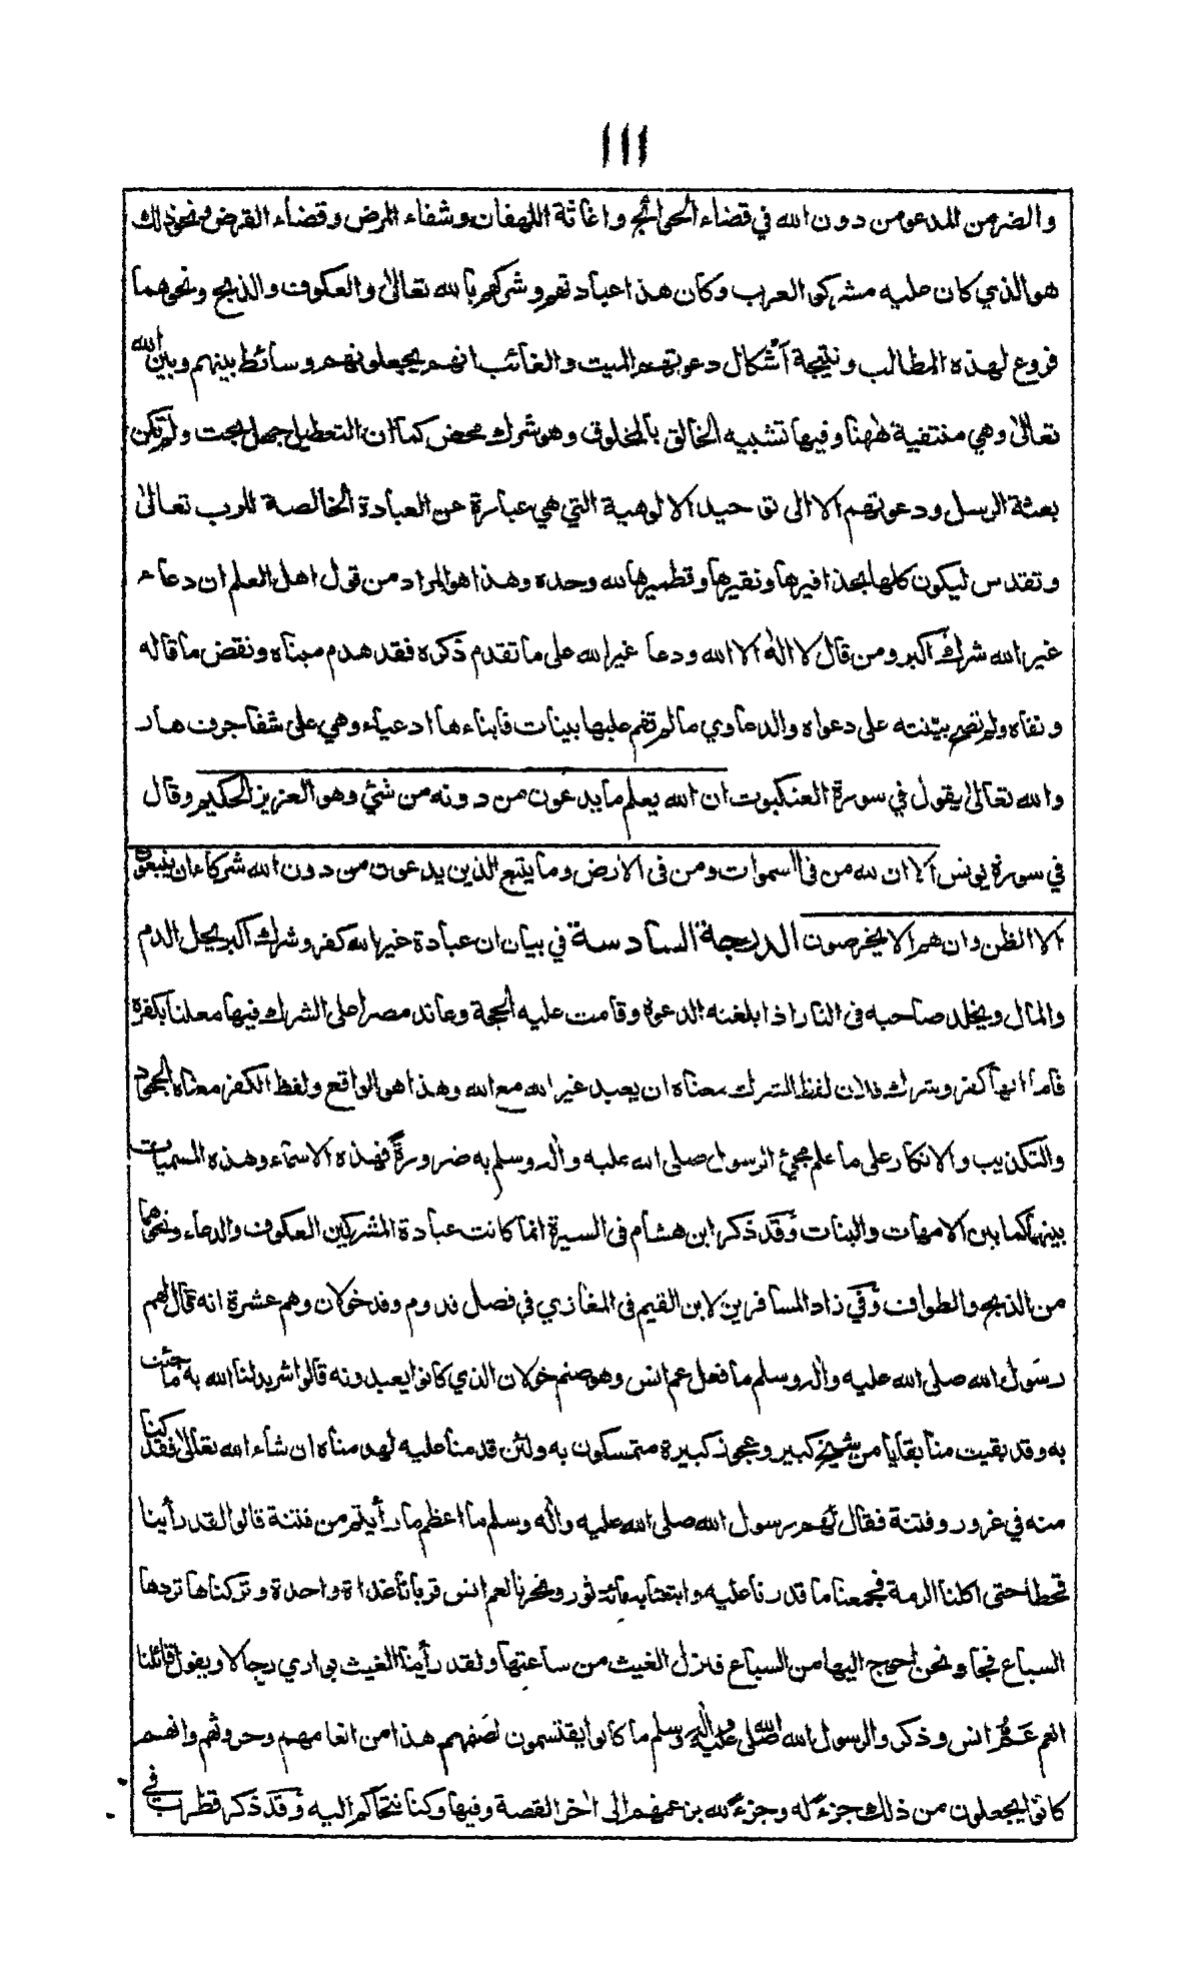 ١١١
والضر من المدعو من دون الله في قضاء الحوائج واغاثة اللهفان وشفاء المرض وقضاء القرض ونحو ذلك
هو الذي كان عليه مشركو العرب وكان هذا عبادتهم وشركهم بالله تعالى والعكوف والذبح ونحوهما
فروع لهذه المطالب ونتيجة اشكال دعوتهم الميت والغائب انهم يجعلونهم وسائط بينهم وبين الله
تعالى وهي منتفية ههنا وفيها تشبيه الخالق بالمخلوق وهو شرك محض كما ان التعطيل جهل بحت ولم تكن
بعثة الرسل ودعوتهم الا الى توحيد الالوهية التي هي عبارة عن العبادة الخالصة للرب تعالى
وتقدس ليكون كلها بحذافيرها ونقيرها وقطميرها لله وحده وهذا هو المراد من قول اهل العلم ان دعاء
غير الله شرك اكبر ومن قال لا اله الا الله ودعا غير الله على ما تقدم ذكره فقد هدم مبناه ونقض ما قاله
ونفاه ولم تصر بيّنته على دعواه والدعاوي ما لم تقم عليها بينات فابناءها ادعياء وهي على شفا جرف هار
والله تعالى يقول في سورة العنكبوت ان الله يعلم ما يدعون من دونه من شئ وهو العزيز الحكيم وقال
في سورة يونس الا ان لله من في السموات ومن في الارض وما يتبع الذين يدعون من دون الله شركاء ان يتبعون
الا الظن وان هم الا يخرصون الدرجة السادسة في بيان ان عبادة غير الله كفر وشرك اكبر يحل الدم
والمال ويخلد صاحبه في النار اذا بلغته الدعوة وقامت عليه الحجة وعاند مصرا على الشرك فيها معلنا بكفره
فاما انها كفر وشرك فلان لفظ الشرك معناه ان يعبد غير الله مع الله وهذا هو الواقع ولفظ الكفر معناه الجحود
والتكذيب والانكار على ما علم مجئ الرسول صلى الله عليه وآله وسلم به ضرورة فهذه الاسماء وهذه المسميات
بينهما كما بين الامهات والبنات وقد ذكر ابن هشام في السيرة انما كانت عبادة المشركين العكوف والدعاء ونحوهما
من الذبح والطواف وفي زاد المسافرين لابن القيم في المغازي في فصل قدوم وفد خولان وهم عشرة انه قال لهم
رسول الله صلى الله عليه وآله وسلم ما فعل عم انس وهو صنم خولان الذي كانوا يعبدونه قالوا ابدلنا الله به ما جئت
به وقد بقيت منا بقايا من شيخ كبير وعجوز كبيرة متمسكون به ولئن قدمنا عليه لهدمناه ان شاء الله تعالى فقد كنا
منه في غرور وفتنة فقال لهم رسول الله صلى الله عليه وآله وسلم ما اعظم ما رأيتم من فتنة قالوا لقد رأينا
قحطا حتى اكلنا الرمة فجمعنا ما قدرنا عليه وابتعنا به مائة ثور ونحرنا لعم انس قربانا غداة واحدة وتركناها تردها
السباع فجاء ونحن احوج اليها من السباع فنزل الغيث من ساعتها ولقد رأينا الغيث يواري رجالا ويقول قائلنا
انعم عم انس وذكروا لرسول الله صلى الله عليه وآله وسلم ما كانوا يقتسمون لصنمهم هذا من انعامهم وحروثهم وانهم
كانوا يجعلون من ذلك جزءً له وجزءً لله بزعمهم الى آخر القصة وفيها وكنا نتحاكم اليه وقد ذكر قطرب في